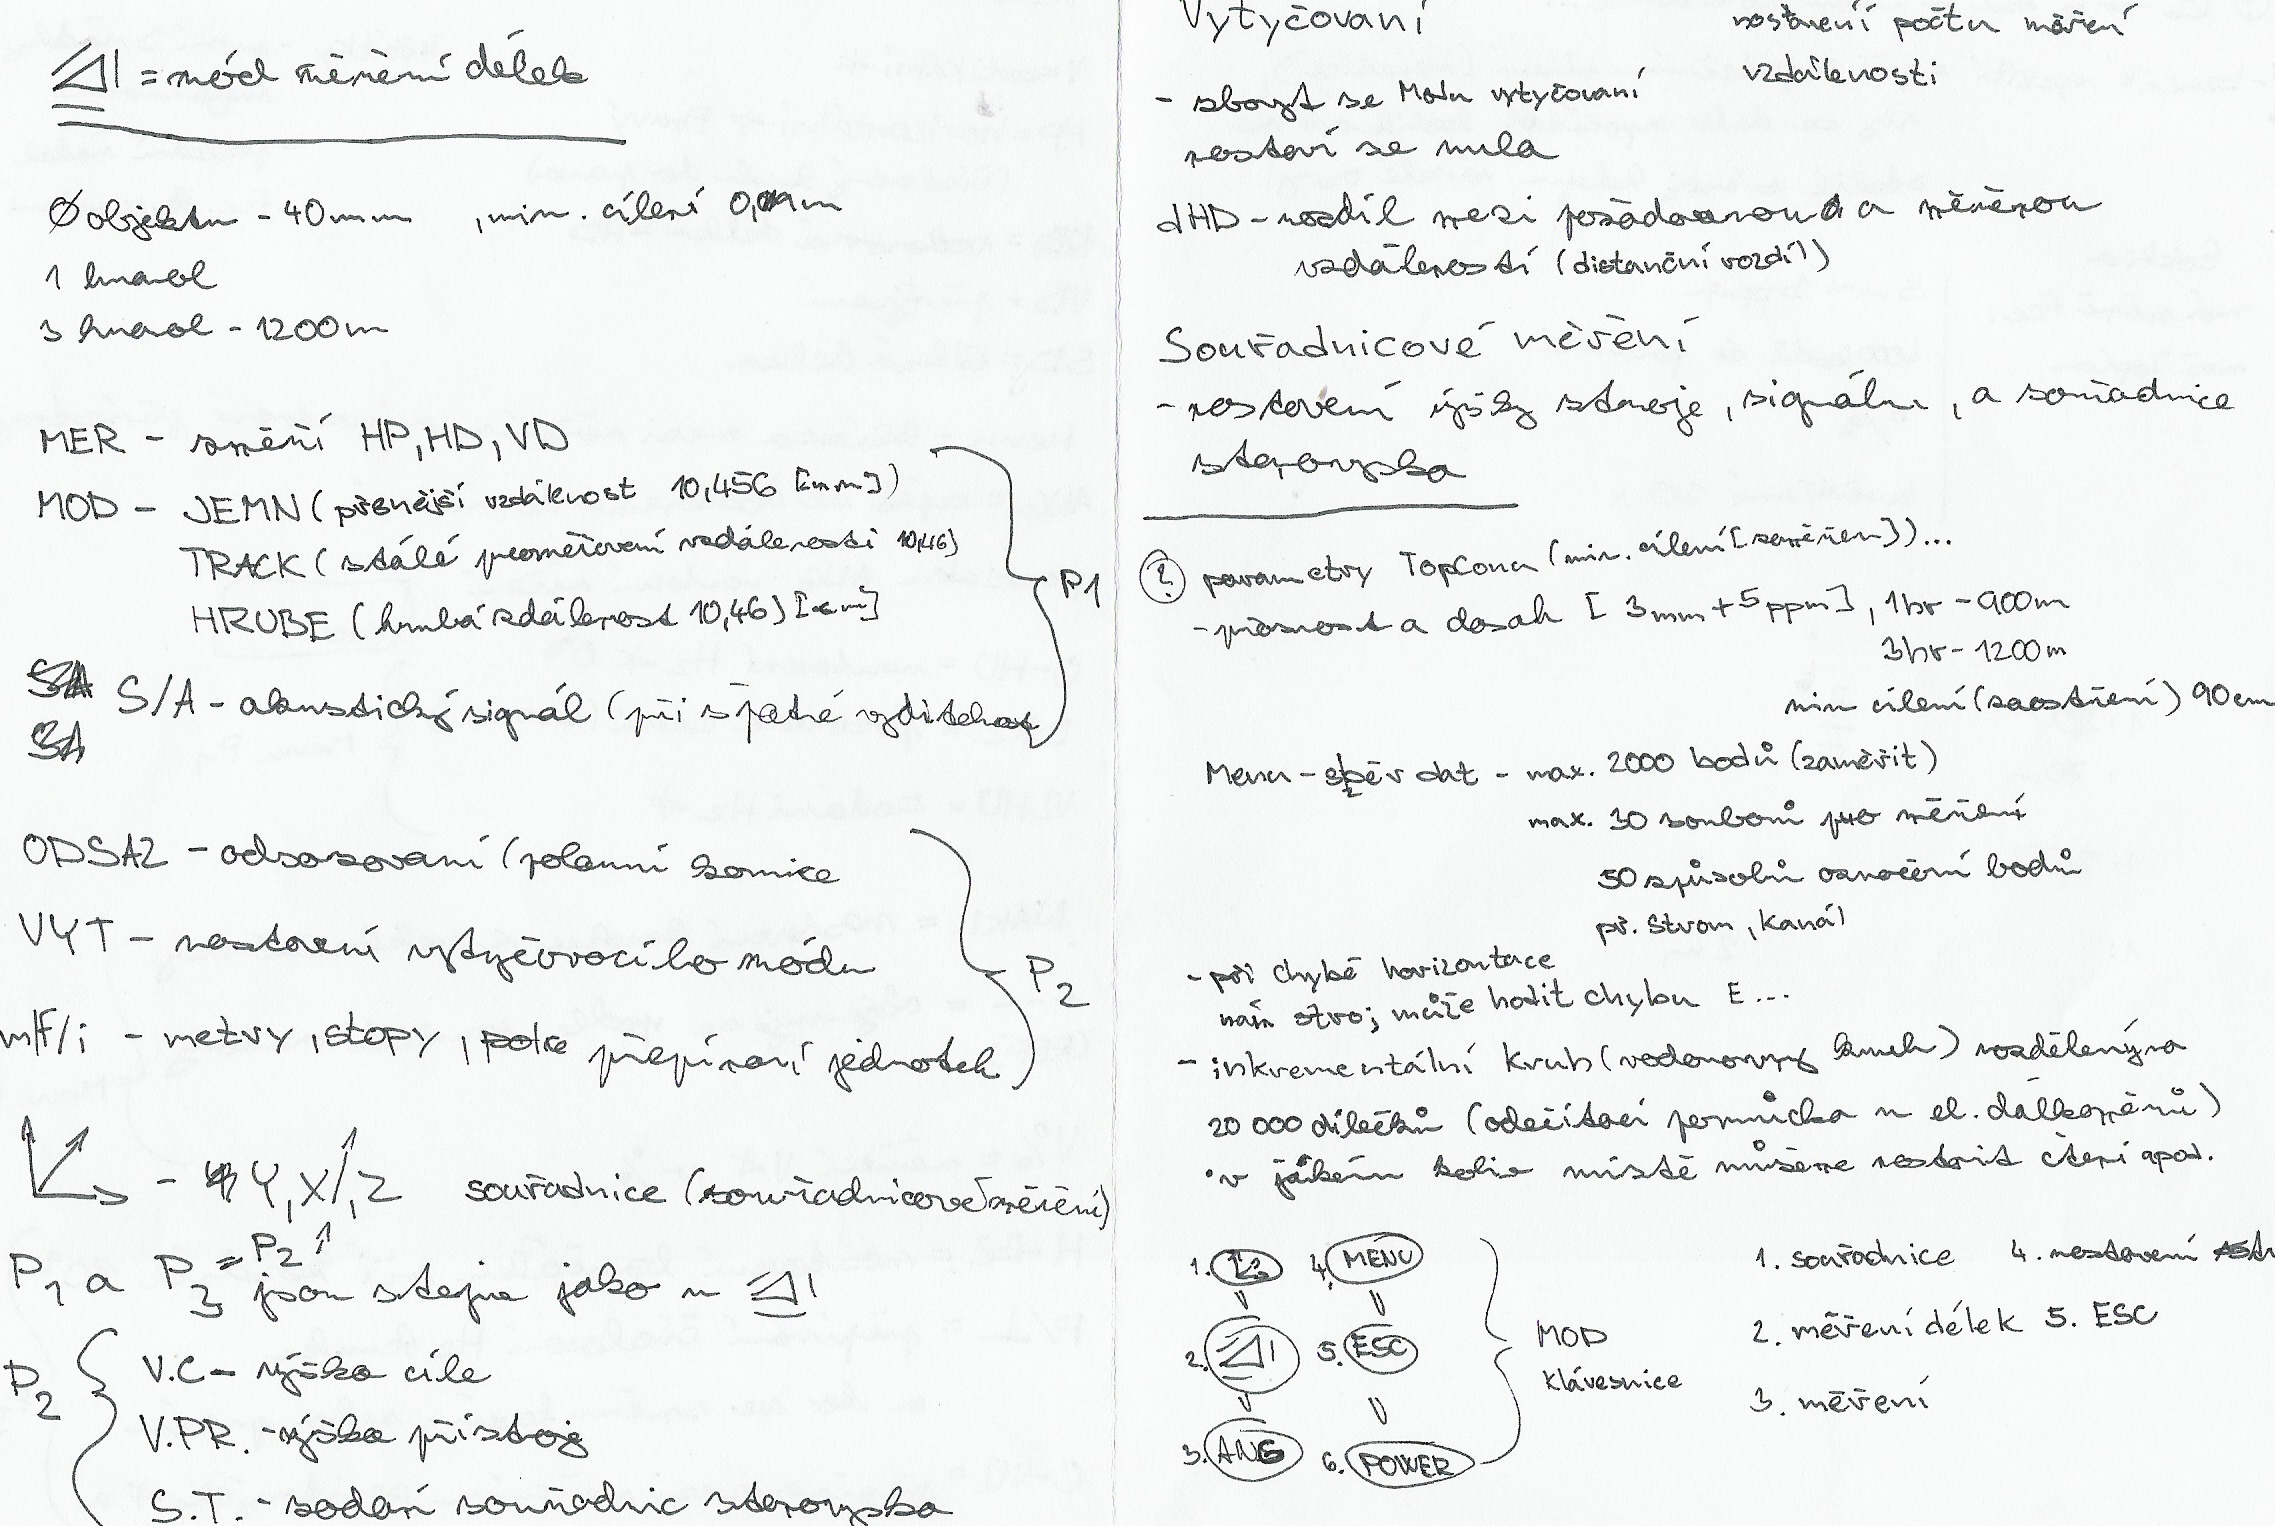 = mód měření délek
Ø objektu - 40mm , min. cílení 0,9m
1 hranol
3 hranol - 1200m
MER - měření HP, HD, VD
MOD - JEMN (přesnější vzdálenost 10,456 [mm])
TRACK (stálé proměřování vzdálenosti 10,46)
HRUBE (hrubá vzdálenost 10,46) [cm]
S/A - akustický signál (při špatné
ODSAZ - odsazování (polární
VYT - nastavení vytyčovacího módu
m/F/i - metry, stopy, palce přepínaní jednotek
- Y, X, Z souřadnice (souřadnicové měření)
P1 a P3 = P2 jsou stejné jako u
P2
V.C - výška cíle
V.PR. - výška přístroje
S.T. - zadaní souřadnic stanoviska
P1
P2
Vytyčovaní
- se Modu vytyčovaní
nastaví se nula
dHD - rozdíl mezi požadovanou a měřenou
vzdáleností (distanční rozdíl)
Souřadnicové měření
- nastavení výšky stroje, signálu, a souřadnice
stanoviska
nastavení počtu měření
vzdálenosti
? parametry TopConu (min. cílení [zaměřen])...
- přesnost a dosah [3mm + 5ppm], 1hr - 900m
3hr - 1200m
min cílení (zaostření) 90cm
Menu - sběr dat - max. 2000 bodů (zaměřit)
max. 30 souborů pro měření
50 způsobů označění bodů
př. Strom, Kanál
- při chybě horizontace
nám stroj může hodit chybu E...
- inkrementální kruh (vodorovný kruh) rozdělený na
20 000 dílečků (odečítací pomůcka u el. dálkoměrů)
• v jakém koliv místě můžeme nastavit čtení apod.
1. 4. MENU
2. 5. ESC
3. ANG 6. POWER
MOD
Klávesnice
1. souřadnice 4. nastavení
2. měření délek 5. ESC
3. měření